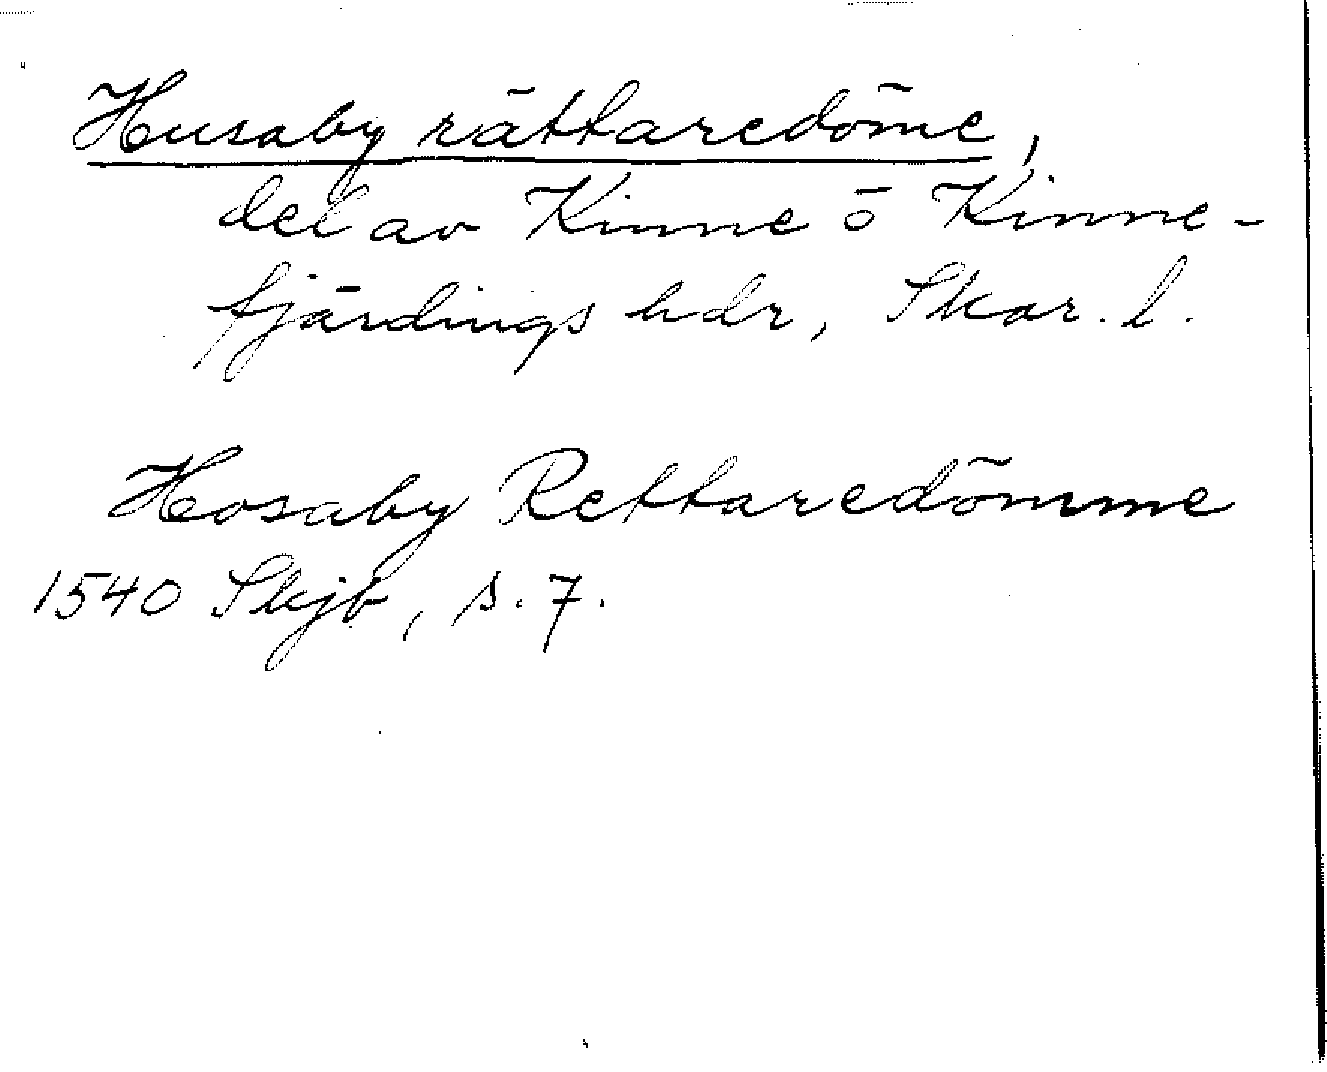 Husaby rättaredöme,
del av Kinne o Kinne-
fjärdings hdr, Skar. l.
Hosaby Rettaredömme
1540 Skjb, s. 7.